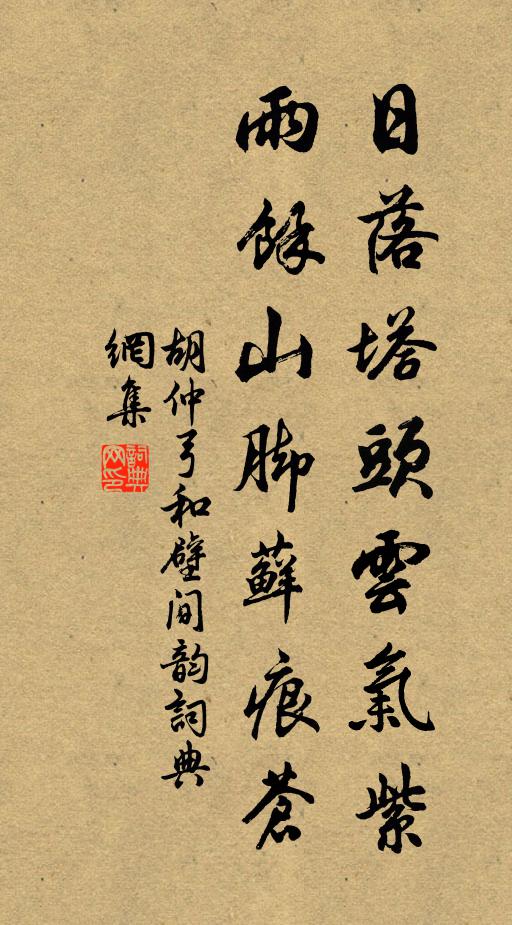 日落塔頭雲氣紫
雨餘山脚蘚痕蒼
胡仲弓和壁间韵詞典
網集
詞典網印